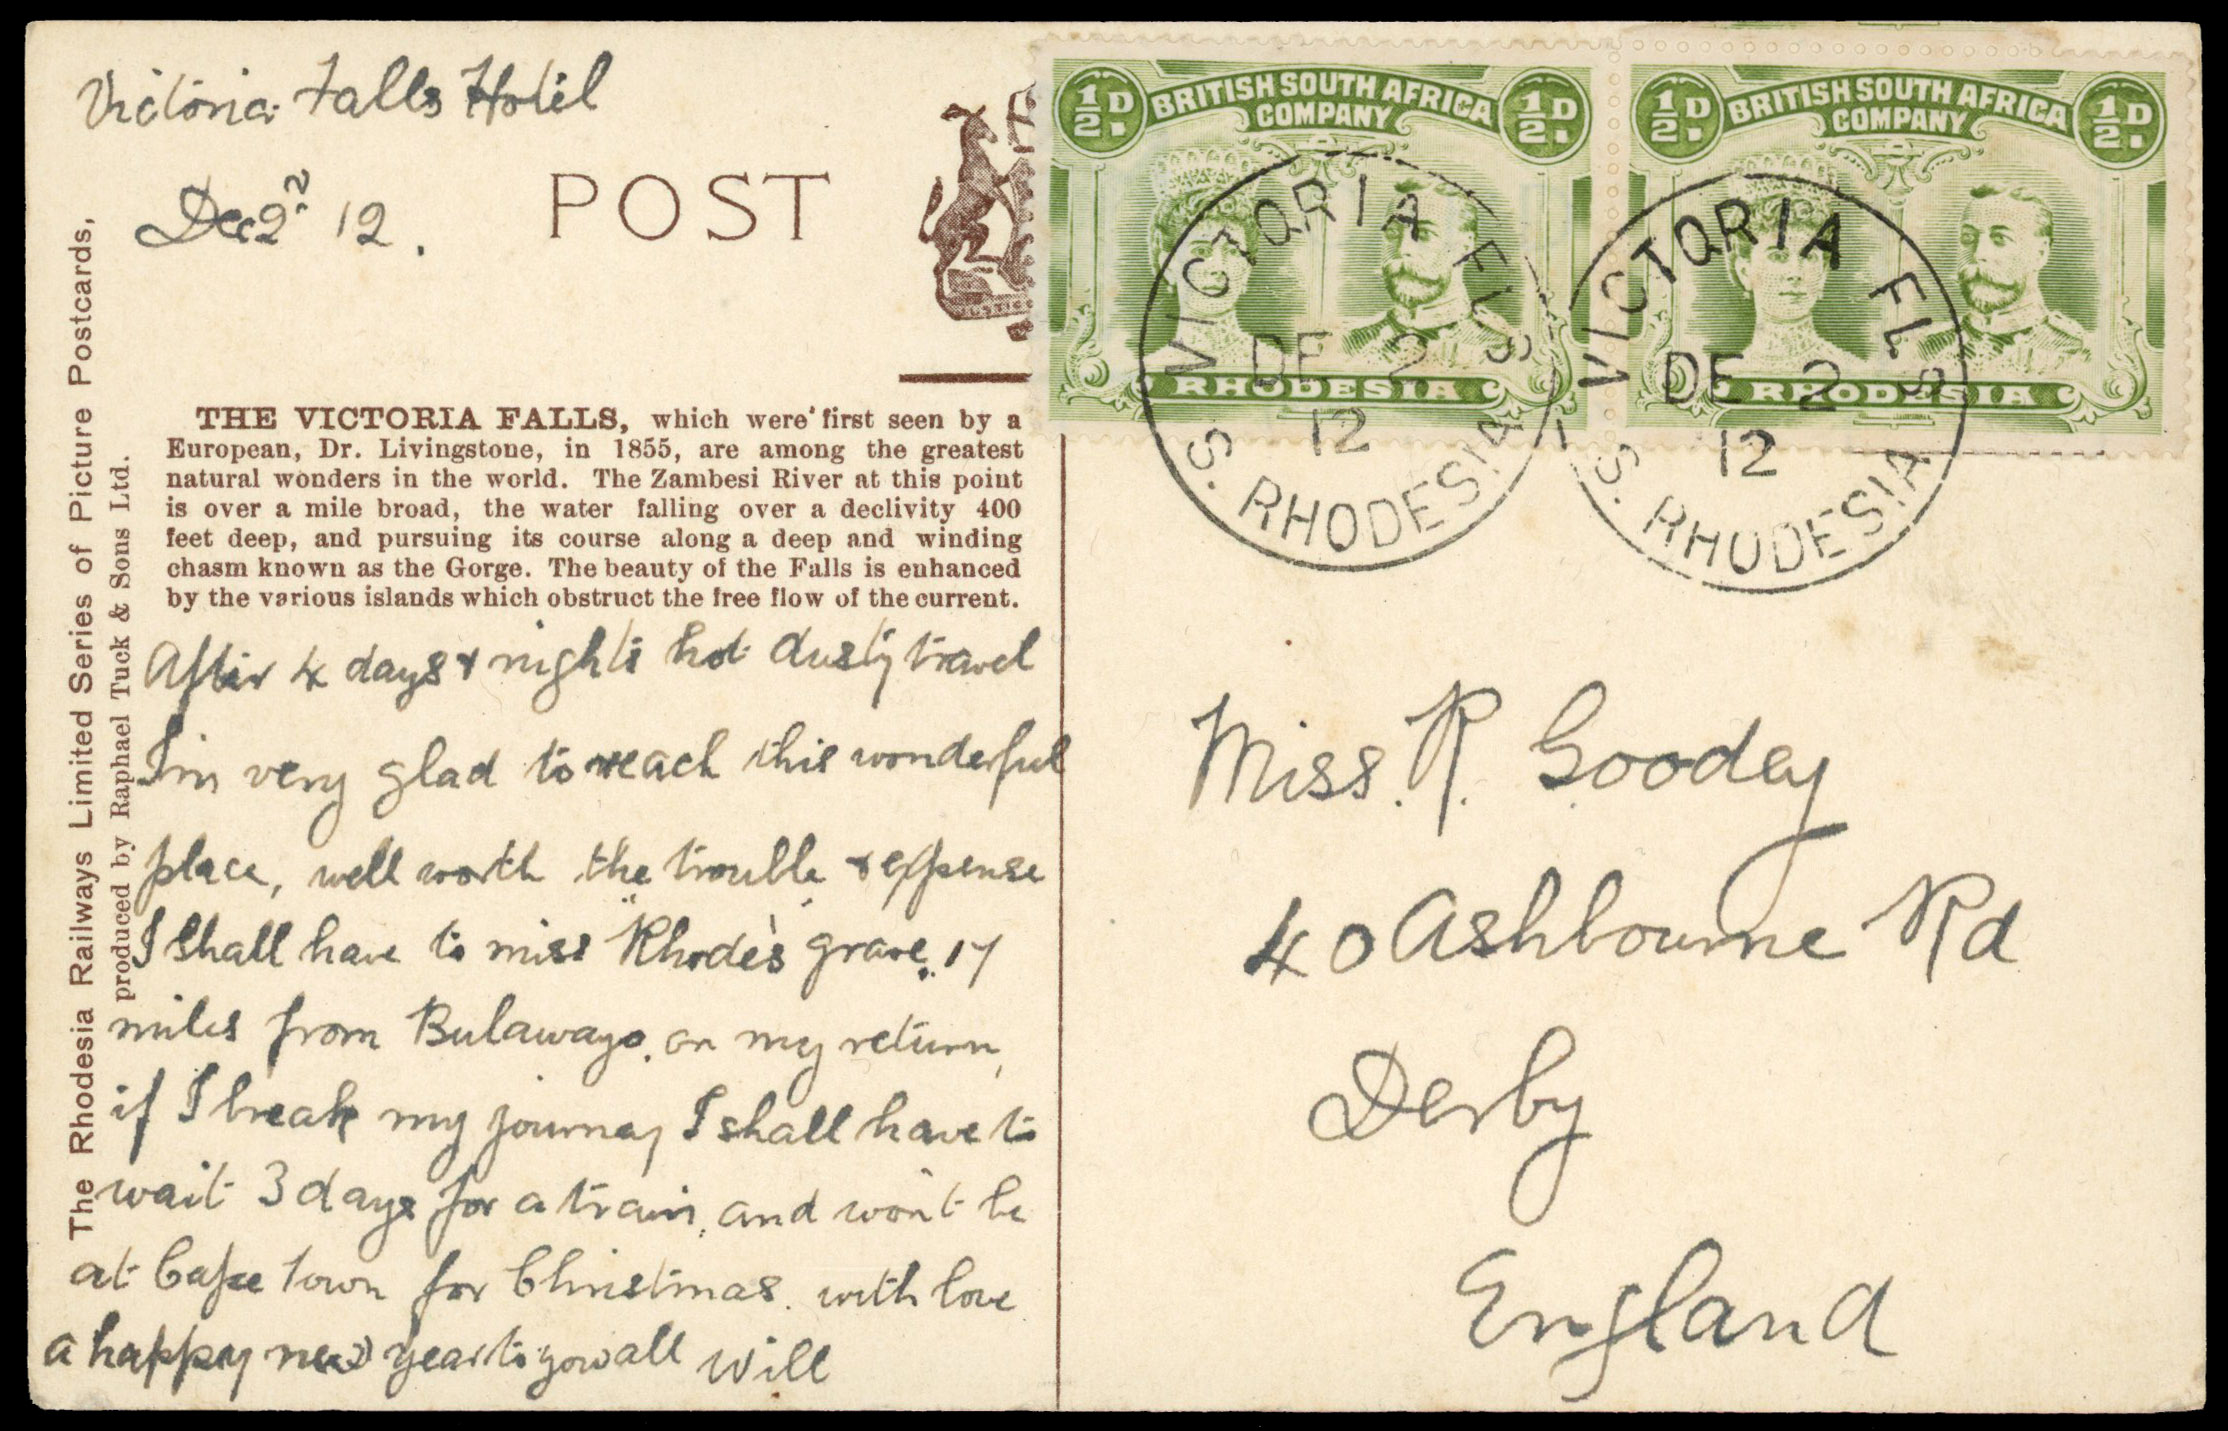 Victoria Falls Hotel
Dec 2n 12.
POST
THE VICTORIA FALLS, which were first seen by a
European, Dr. Livingstone, in 1855, are among the greatest
natural wonders in the world. The Zambesi River at this point
is over a mile broad, the water falling over a declivity 400
feet deep, and pursuing its course along a deep and winding
chasm known as the Gorge. The beauty of the Falls is enhanced
by the various islands which obstruct the free flow of the current.
After 4 days & nights hot dusty travel
I'm very glad to reach this wonderful
place, well worth the trouble & expense
I shall have to miss "Rhode's grave" 17
miles from Bulawayo, on my return,
if I break my journey I shall have to
wait 3 days for a train, and won't be
at Cape Town for Christmas. with love
a happy new year to you all Will
The Rhodesia Railways Limited Series of Picture Postcards,
produced by Raphael Tuck & Sons Ltd.
JUSTICE
½D. BRITISH SOUTH AFRICA COMPANY ½D.
RHODESIA
½D. BRITISH SOUTH AFRICA COMPANY ½D.
RHODESIA
VICTORIA FLS
DE 2
12
S. RHODESIA
VICTORIA FLS
DE 2
12
S. RHODESIA
Miss. R. Goodey
40 Ashbourne Rd
Derby
England